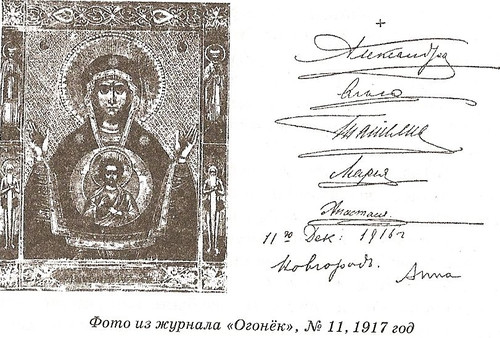 Александра
Ольга
Татьяна
Мария
Анастасия
11го Дек: 1916г
Новгородъ. Анна
Фото из журнала «Огонёк», № 11, 1917 год